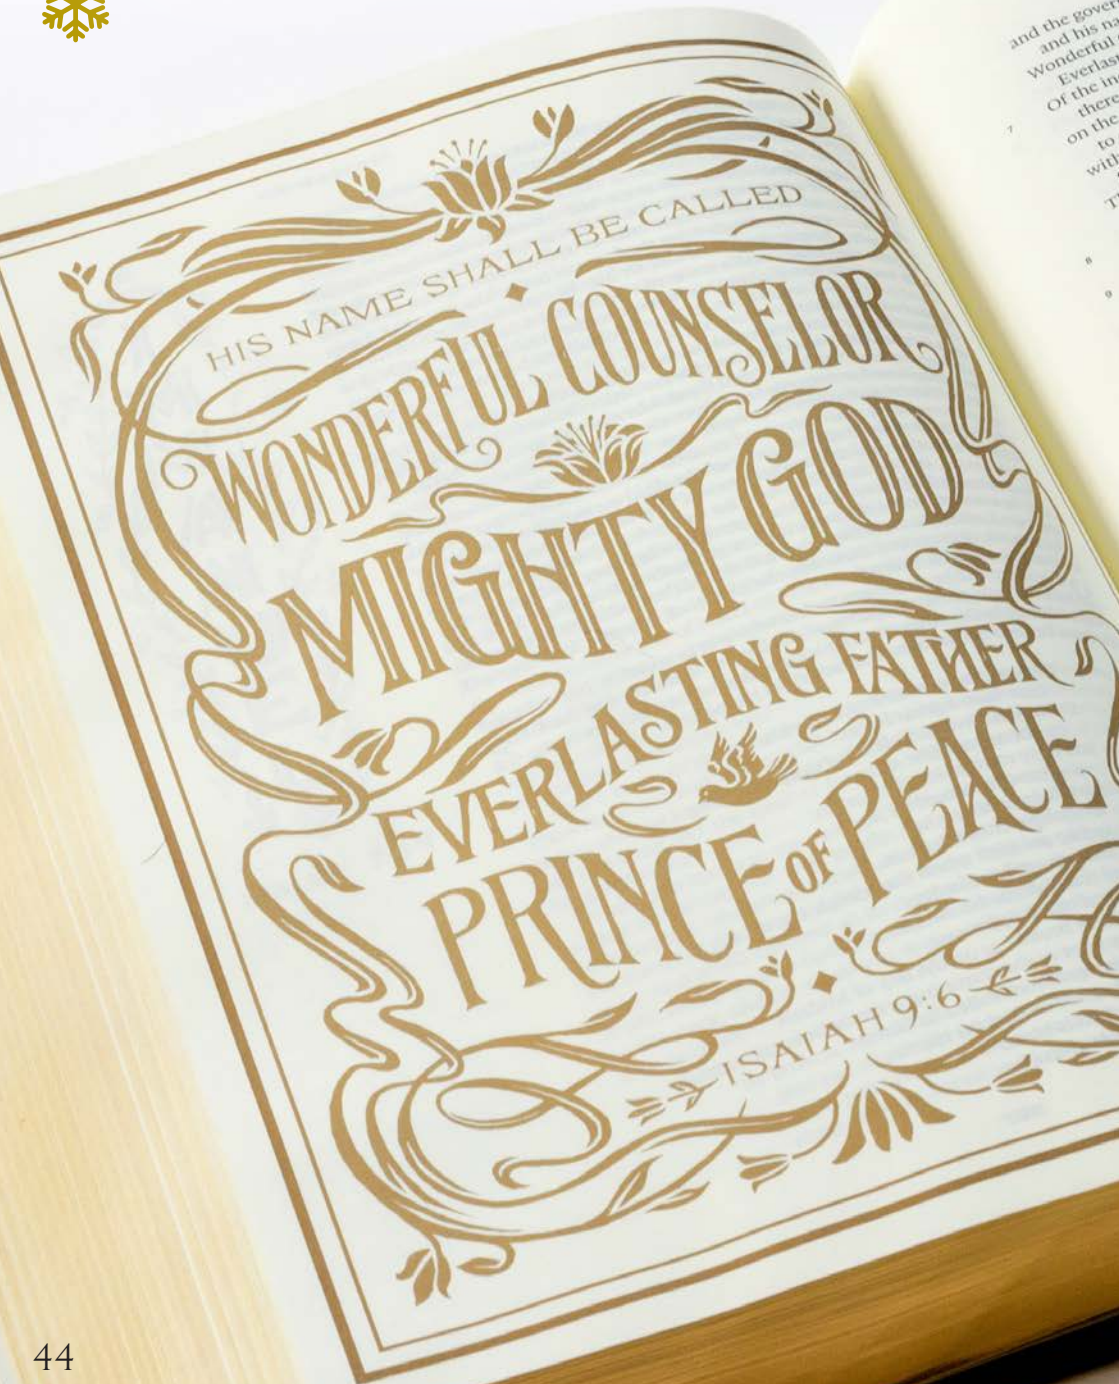 HIS NAME SHALL BE CALLED
WONDERFUL COUNSELOR
MIGHTY GOD
EVERLASTING FATHER
PRINCE OF PEACE
ISAIAH 9:6
and the gover
and his na
Wonderful
Everlast
Of the in
7 there
on the
to
with
8
9
44